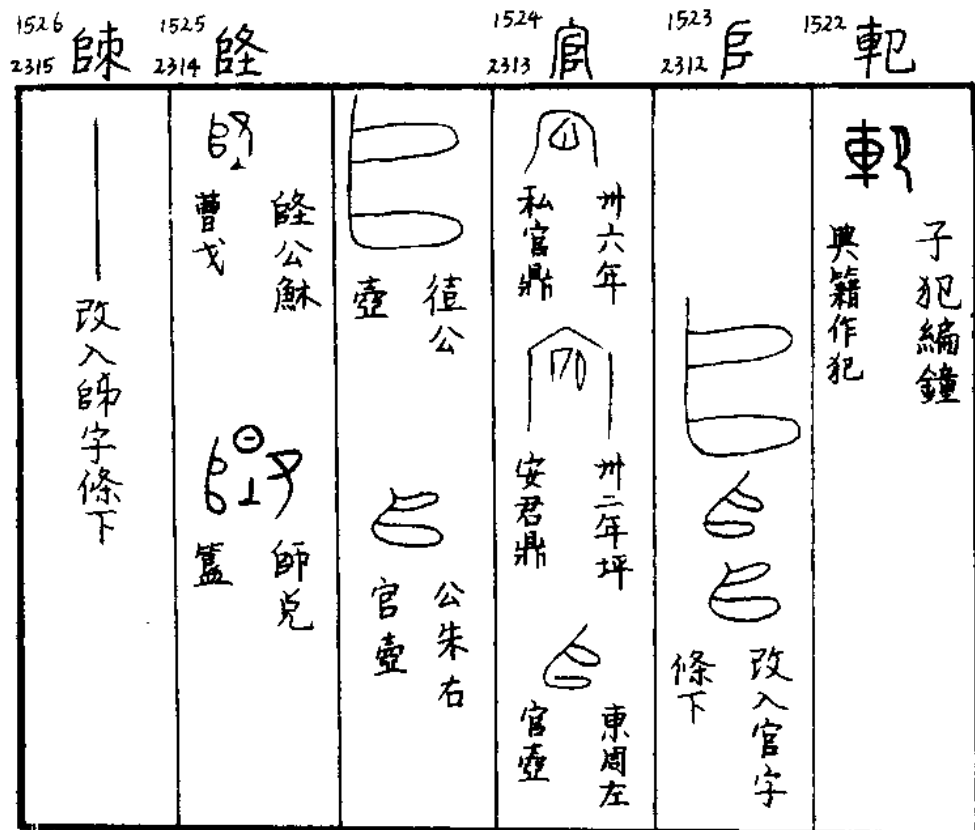 1522 軋
子犯編鐘
典籍作犯
1523
2312 𠂤
改入官字
條下
1524
2313 官
卅六年
私官鼎
卅二年坪
安君鼎
東周左
官壺
徝公
壺
公朱右
官壺
1525
2314
公穌
曹戈
師兌
簋
1526
2315
改入師字條下